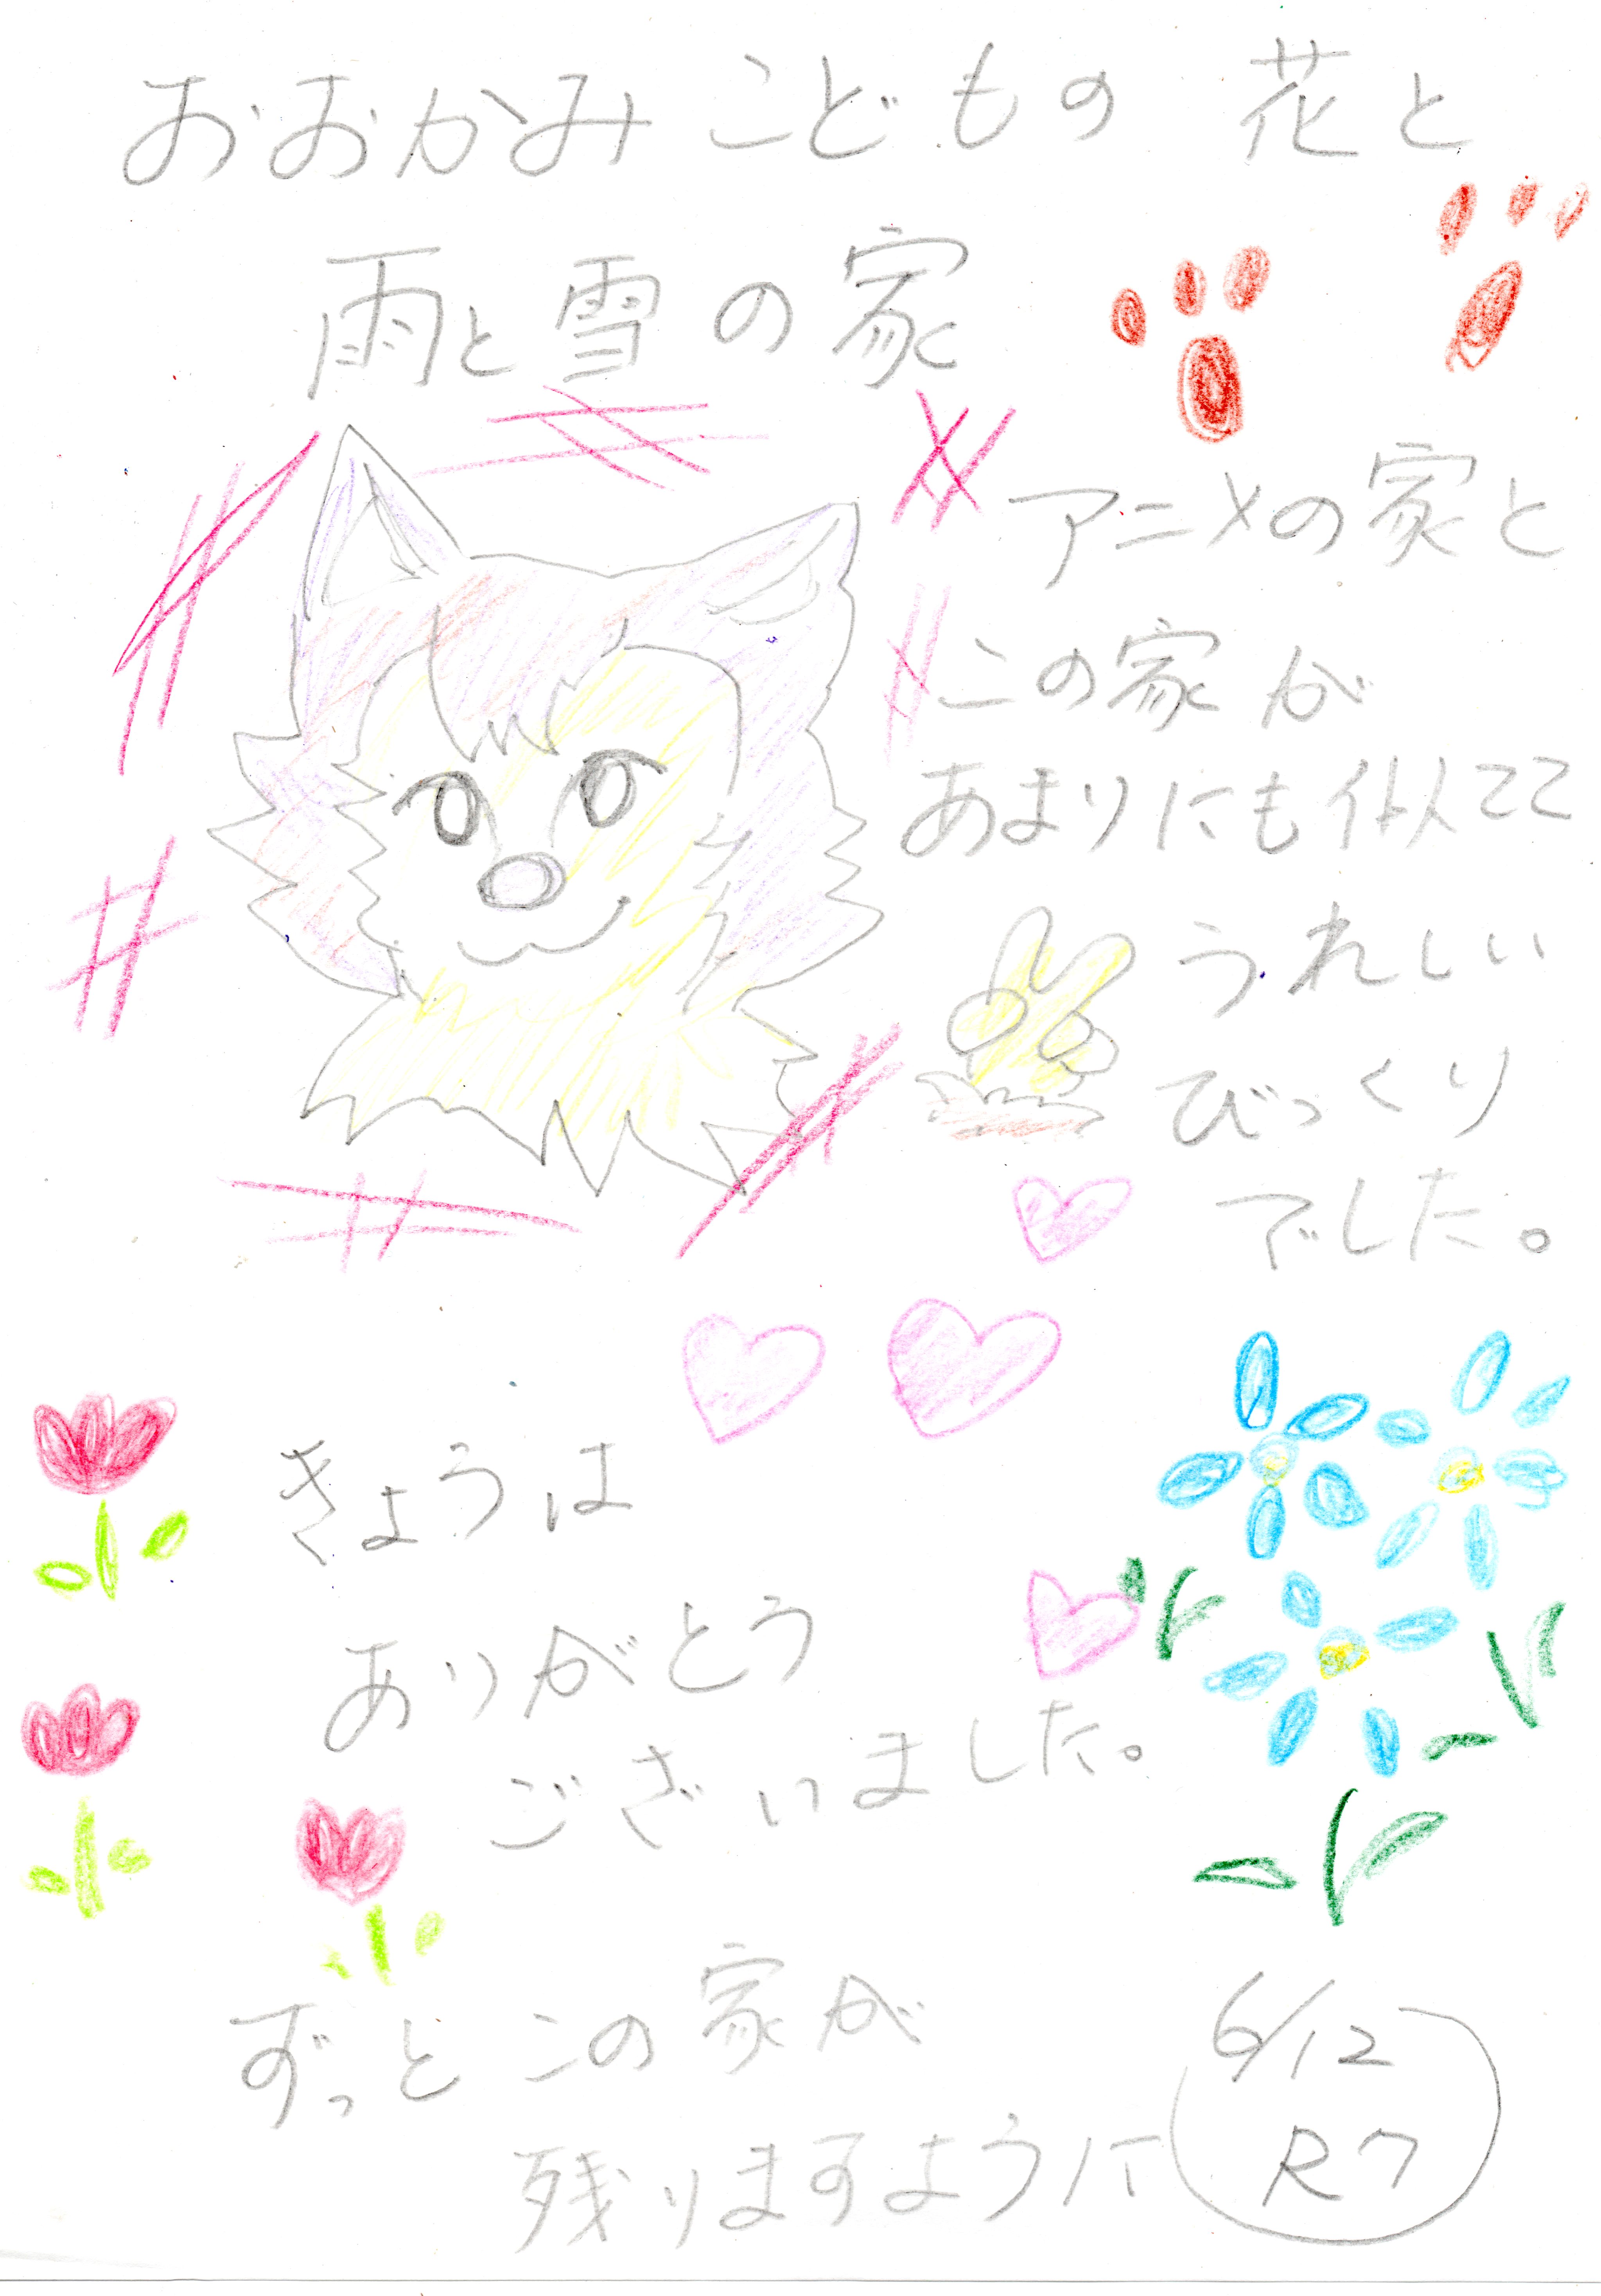 おおかみこどもの花と
雨と雪の家
アニメの家と
この家が
あまりにも似てて
うれしい
びっくり
でした。
きょうは
ありがとう
ございました。
ずっとこの家が
残りますように
6/12
R7